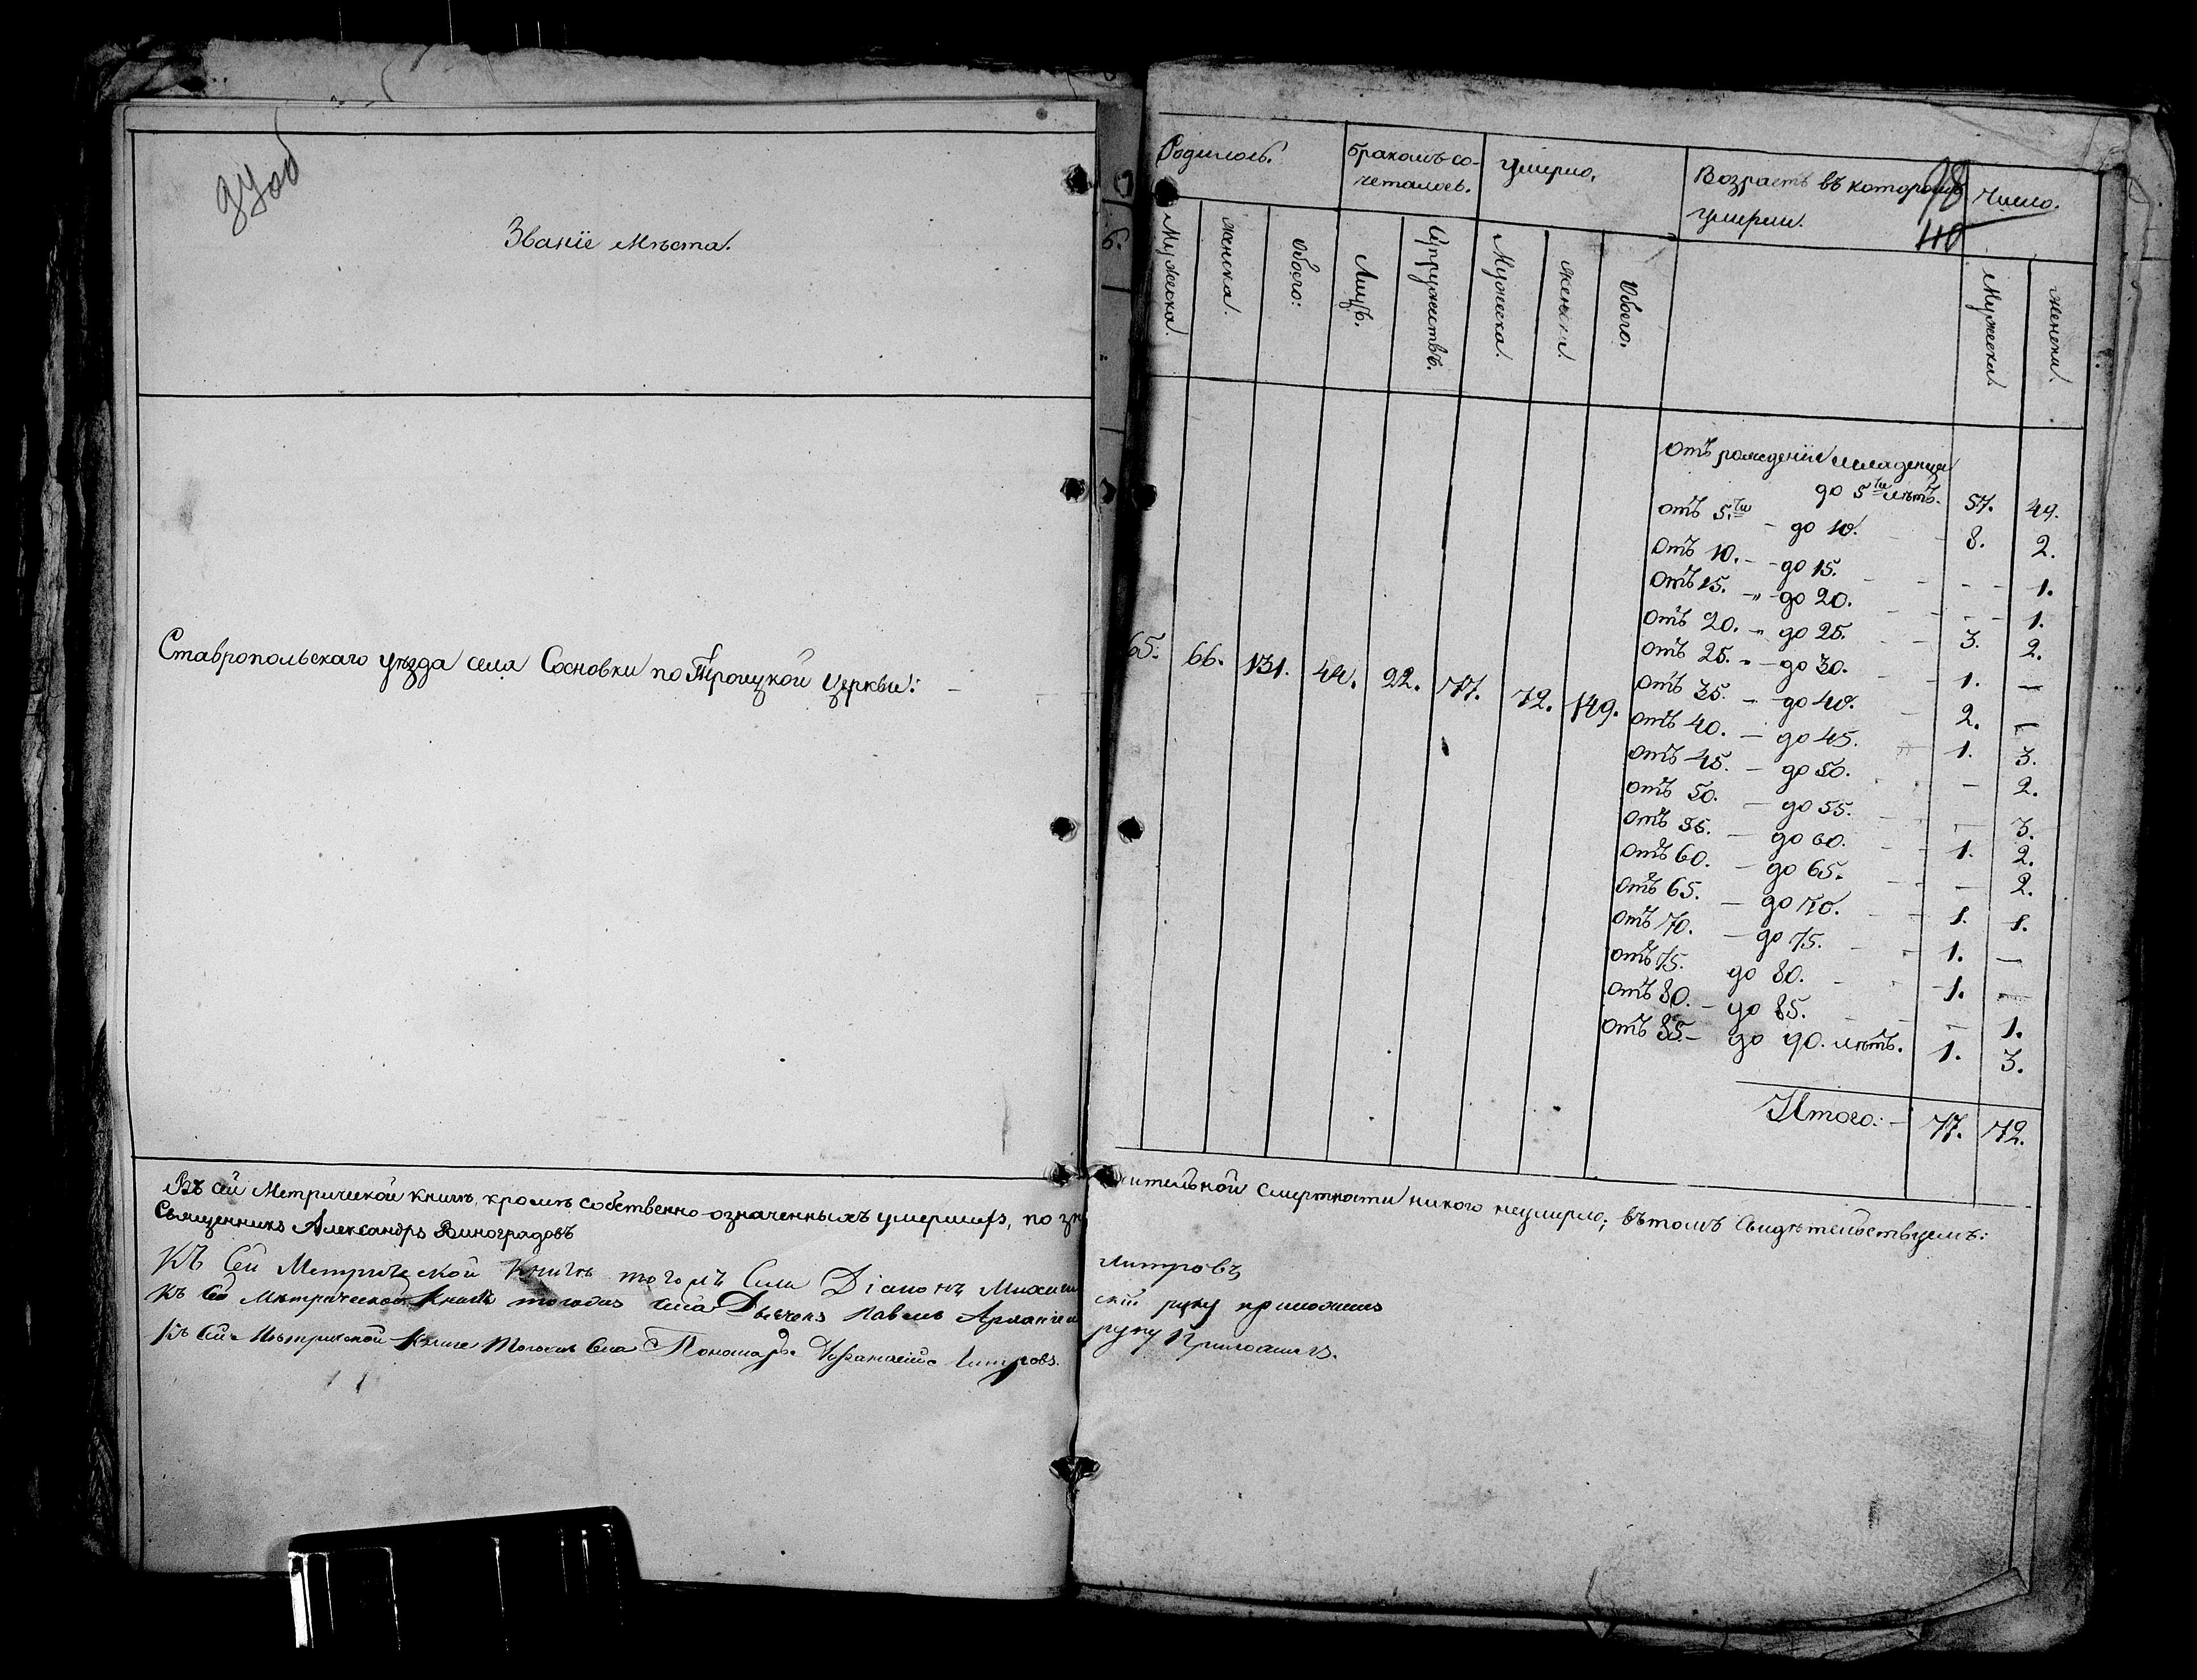 Званіе мѣста.
Ставропольскаго уѣзда села Сосновки по Троицкой церкви:
Въ сей Метрической книгѣ, кромѣ собственно означенныхъ умершихъ, по
Священникъ Александръ Виноградовъ
Къ Сей Метрической Книгѣ тогожъ Села Діаконъ
Къ Сей Метрической Книгѣ тогожъ села Дьячекъ Павелъ
Къ Сей Метрической Книге Тогожъ Села Пономарь
98
110
Родилось. Бракомъ со-четалось. Умерло. Возрастъ въ которомъ умерли. Число.
Мужеска. Женска. Обоего: Лицъ. Супружествъ. Мужеска. Женска. Обоего. Мужеска. Женска.
Отъ рожденія младенца
до 5ти лѣтъ. 57. 49.
Отъ 5ти - до 10. 8. 2.
Отъ 10. - до 15. - 1.
Отъ 15. - до 20. - 1.
Отъ 20. - до 25. 3. 2.
Отъ 25. - до 30. 1. —
Отъ 35. - до 40. 2. —
Отъ 40. - до 45. 1. 3.
Отъ 45. - до 50. - 2.
Отъ 50. - до 55. - 3.
Отъ 55. - до 60. 1. 2.
Отъ 60. - до 65. — 2.
Отъ 65. - до 70. 1. 1.
Отъ 70. - до 75. 1. —
Отъ 75. до 80. 1. —
Отъ 80. - до 85. - 1.
Отъ 85. - до 90. лѣтъ. 1. 3.
65. 66. 131. 44. 22. 77. 72. 149.
Итого: - 77. 72.
ительной смертности никого неумерло; въ томъ Свидѣтельствуемъ:
митровъ
скій руку приложилъ
руку Приложилъ.